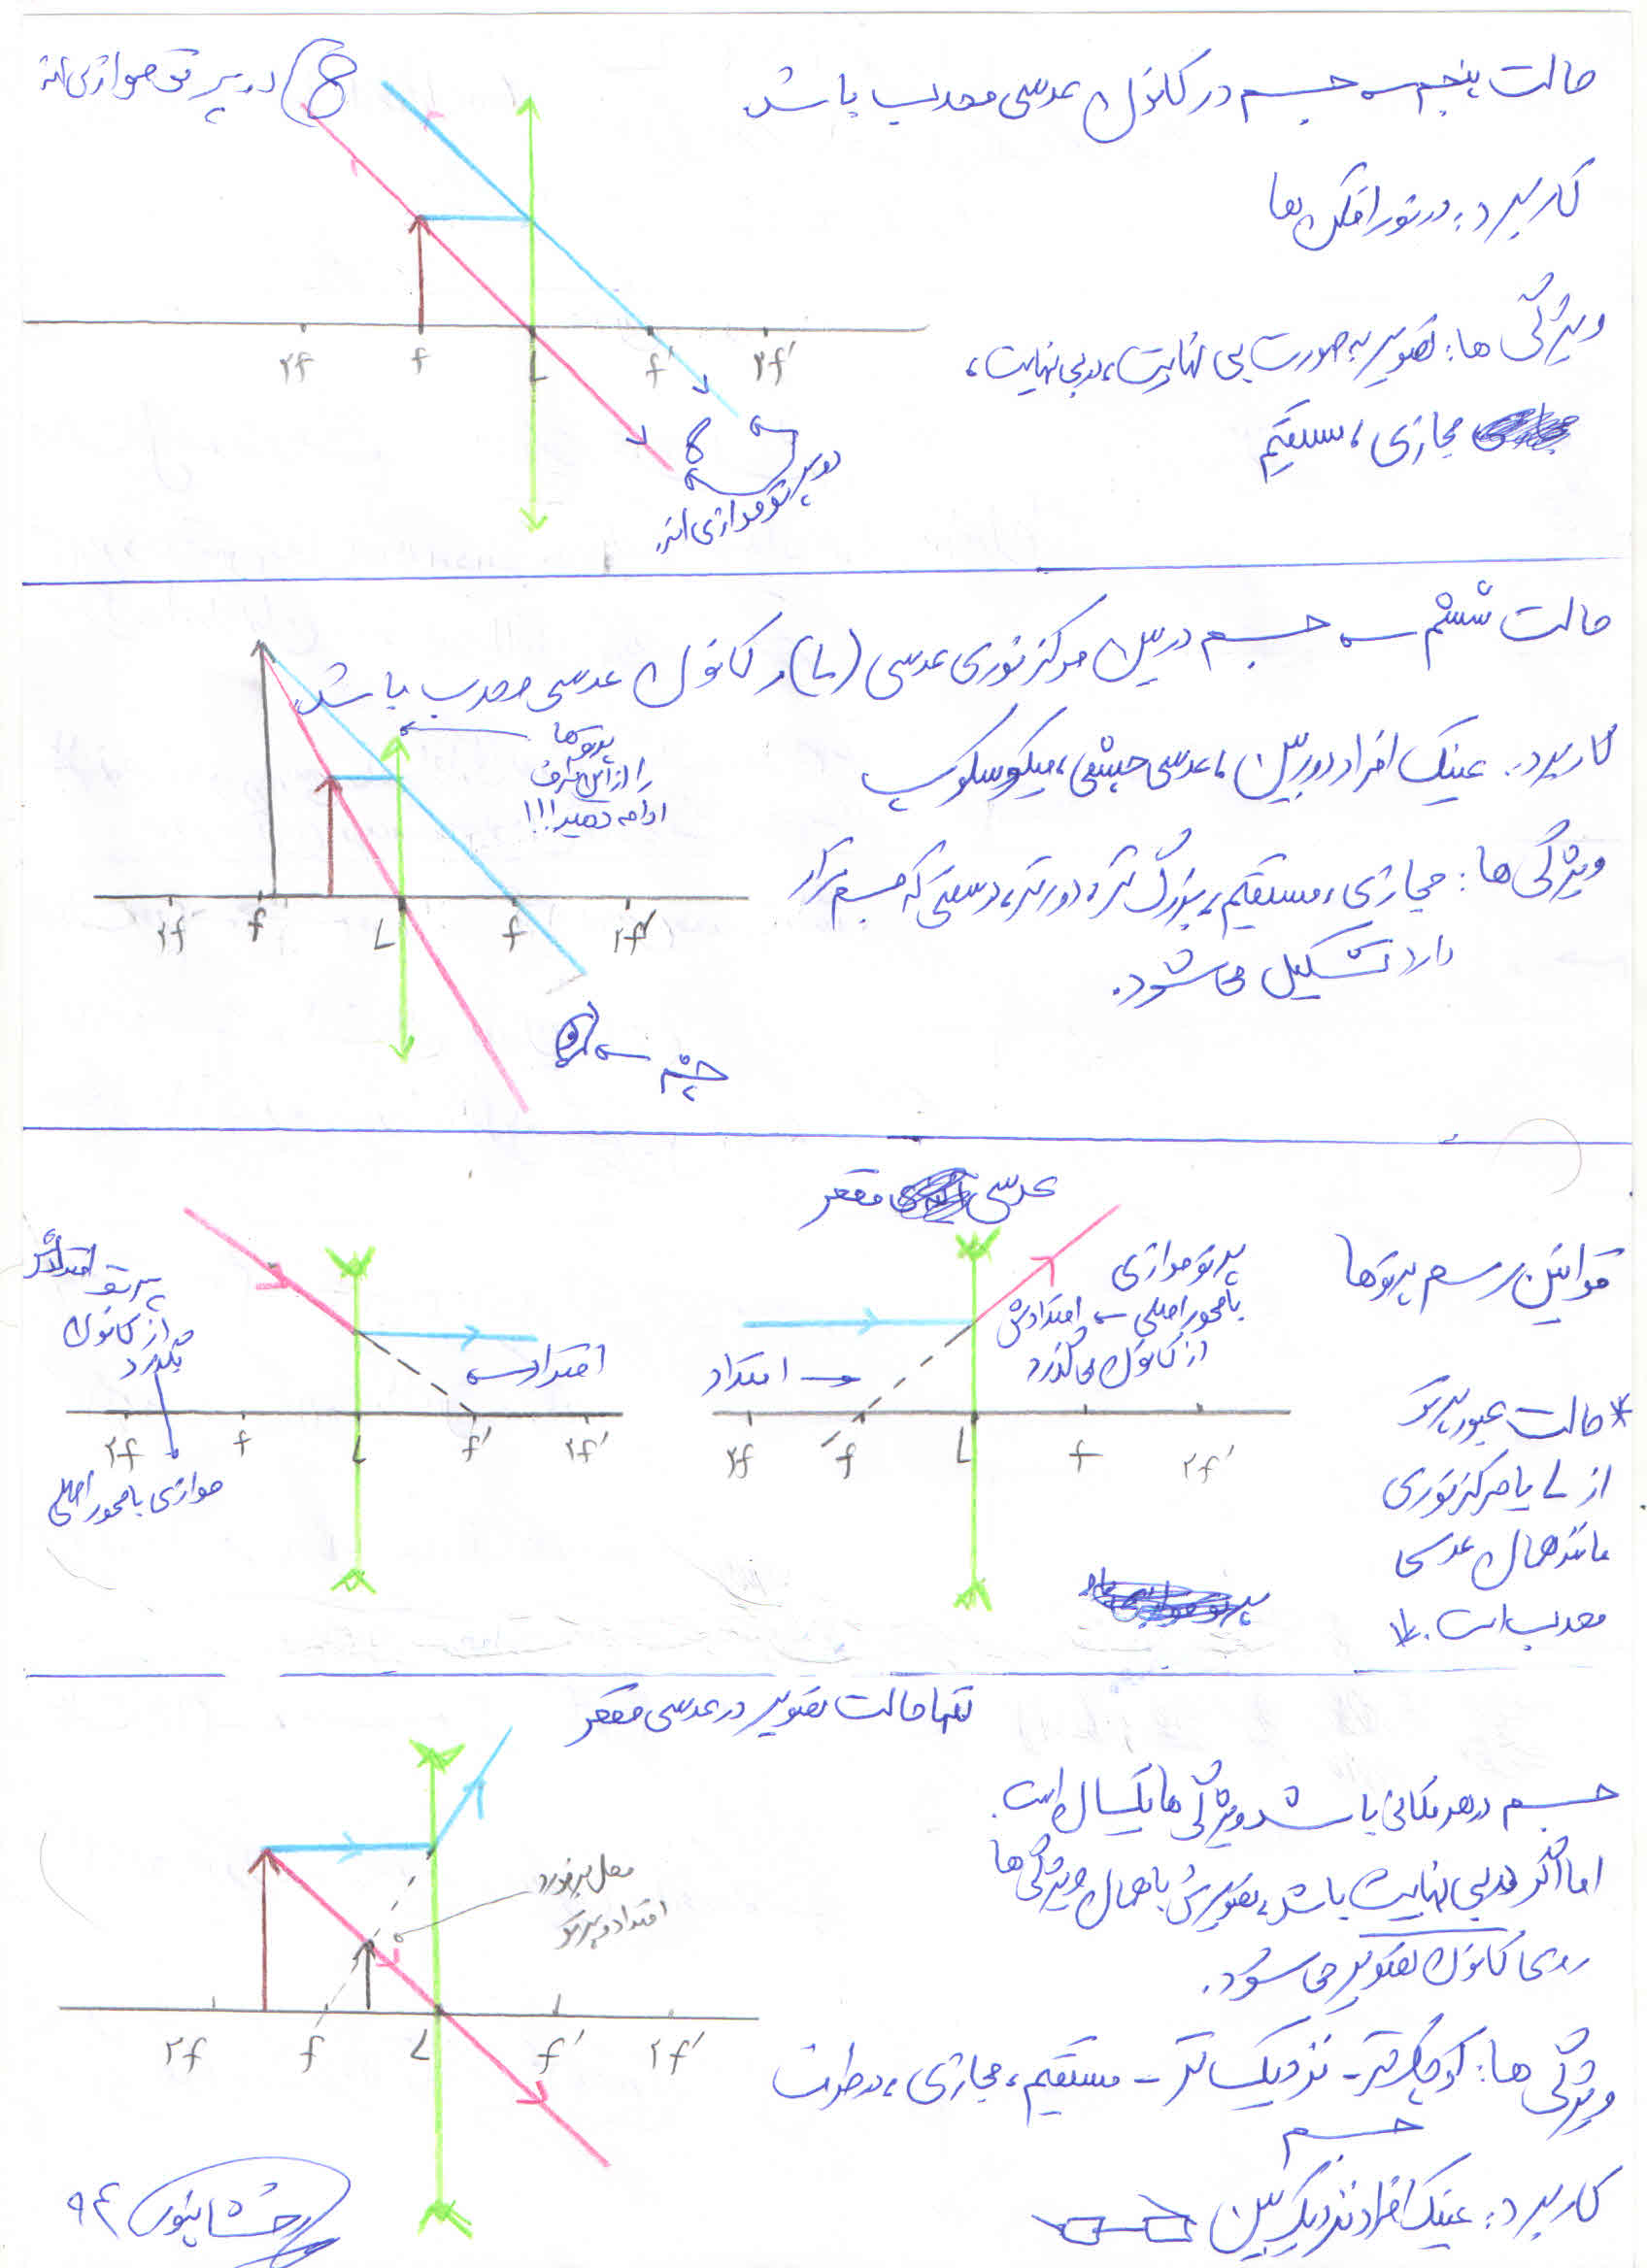 حالت پنجم ← جسم در کانون عدسی محدب باشد
کاربرد: در نورافکن ها
ویژگی ها: تصویر به صورت بی نهایت، در بی نهایت،
مجازی، مستقیم
دو پرتو موازی اند
2f f L f' 2f'
دو پرتو موازی اند.
حالت ششم ← جسم در بین مرکز نوری عدسی (L) و کانون عدسی محدب باشد
کاربرد: عینک افراد دوربین، عدسی چشمی، میکروسکوپ
ویژگی ها: مجازی، مستقیم، بزرگ تر، دورتر، در سمتی که جسم قرار
دارد تشکیل می شود.
پرتوها
را از این طرف
ادامه دهید!!!
۲f f L f ۲f'
چشم ←
عدسی مقعر
قوانین رسم پرتوها
پرتو موازی
با محور اصلی ← امتدادش
از کانون می گذرد
امتداد →
۲f f' L f ۲f'
* حالت عبور پرتو
از L یا مرکز نوری
مانند همان عدسی
محدب است. *
پرتو امتدادش
از کانون
بگذرد
موازی با محور اصلی
امتداد ←
۲f f L f' ۲f'
تنها حالت تصویر در عدسی مقعر
جسم در هر مکانی باشد ویژگی ها یکسان است.
اما اگر در بی نهایت باشد، تصویرش با همان ویژگی ها
روی کانون تصویر می شود.
محل برخورد
امتداد دو پرتو
۲f f L f' ۲f'
ویژگی ها: کوچک تر - نزدیک تر - مستقیم، مجازی، در طرف
جسم
کاربرد: عینک افراد نزدیک بین
۹۴